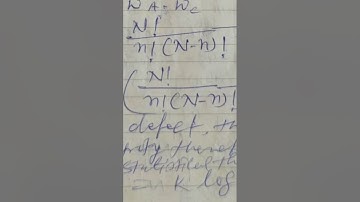 W_A . W_C
N!
n! (N-n)!
( N!
n! (N-n)!
defect, th
statistical th
K log